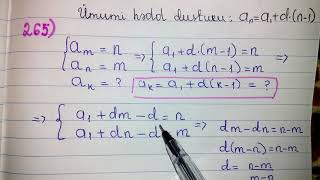 Ümumi hədd dusturu: aₙ=a₁+d·(n-1)
265)
{ aₘ = n
aₙ = m
aₖ = ?
⇒ { a₁+d·(m-1)=n
a₁+d·(n-1)=m
aₖ = a₁+d(k-1) = ?
⇒ { a₁+dm-d=n
a₁+dn-d m
⇒ dm-dn=n-m
d(m-n)=n-m
d= n-m
m-n